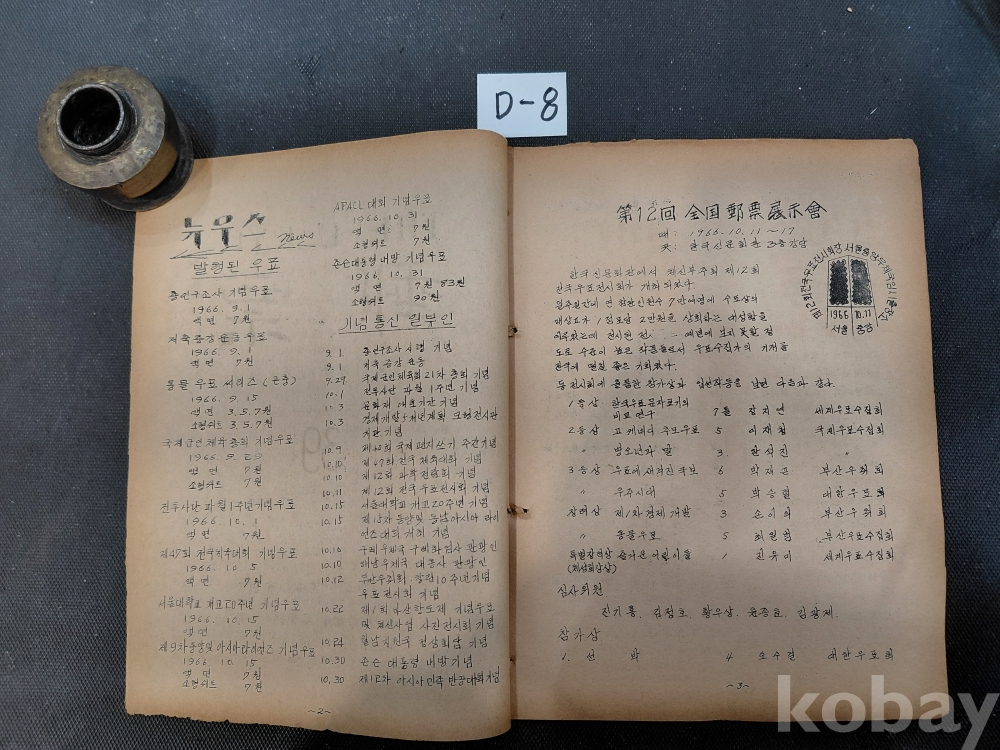 D-8
뉴우스 News
발행된 우표
총인구조사 기념우표
1966. 9. 1
액면 7원
저축증강운동 우표
1966. 9. 1
액면 7원
동물우표 시리즈 (곤충)
1966. 9. 15
액면 3.5.7원
소형쉬트 3.5.7원
국제군인체육총회 기념우표
1966. 9. 29
액면 7원
소형쉬트 7원
전투사단 파월 1주년기념우표
1966. 10. 1
액면 7원
제47회 전국체육대회 기념우표
1966. 10. 5
액면 7원
서울대학교 개교20주년 기념우표
1966. 10. 15
액면 7원
제9차동양및아시아라이온즈 기념우표
1966. 10. 15
액면 7원
소형쉬트 7원
APACL 대회 기념우표
1966. 10. 31
액면 7원
소형쉬트 7원
존슨대통령 내방 기념우표
1966. 10. 31
액면 7원 83원
소형쉬트 90원
기념통신 일부인
9. 1 총인구조사 시행 기념
9. 1 저축 증강 운동
9. 29 국제군인체육회 21차 총회 기념
10. 1 전투사단 파월 1주년 기념
10. 3 문화재 애호기간 기념
10. 3 경제개발 5개년계획 모형전시관
개관 기념
10. 9 제10회 국제 편지쓰기 주간기념
10. 10 제47회 전국 체육대회 기념
10. 10 제12회 과학 전람회 기념
10. 11 제12회 전국우표전시회 기념
10. 15 서울대학교 개교20주년 기념
10. 15 동양및 동남아시아 라이
언즈대회 개최 기념
10. 10 구례우체국 관광인
10. 10 해남우체국 대흥사 관광인
10. 12 부산우취회 창립10주년기념
우표전시회 기념
10. 22 기념우표
및 체신사업 사진전시회 기념
10. 24 월남참전국 정상회담 기념
10. 30 존슨 대통령 내방기념
10. 30 제12차 아시아민족 반공대회기념
~2~
第12回 全国郵票展示會
때: 1966. 10. 11 ~ 17
곳: 한국신문회관 3층강당
제12회전국우표전시회장 서울중앙우체국임시출장소
1966 10.11
서울 중앙
한국신문회관에서 체신부주최 제12회
전국우표전시회가 개최되었다.
일주일간에 연 참관인원수 7만여명에 수표상의
매상고가 1점포당 2만원을 상회하는 대성황을
이루었는데 전시된 예년에 보지 못할 정
도로 수준이 높은 작품들로서 우표수집가의 기개를
전국에 떨칠 좋은 기회였다.
동전시회에 출품한 참가상과 입선작품을 보면 다음과 같다.
1등상 한국우표문자표기의
비교연구 7틀 장지연 세계우표수집회
2등상 고 케네디 추모우표 5 이재철 국제우표수집회
〃 병오년과 말 3 한석진 〃
3등상 우표에 새겨진 국보 6 박재곤 부산우취회
〃 우주시대 5 박승렬 대한우표회
장려상 제1차경제개발 3 손이석 부산우취회
〃 동물우표 5 최원범 부산우취회
특별장려상 슬기로운 어린이들 1 진유미 세계우표수집회
(체성회상)
심사위원
진기홍, 김정호, 황우상, 윤종호, 김광재.
참가상
1. 선박 4 소수영 대한우표회
~3~
kobay